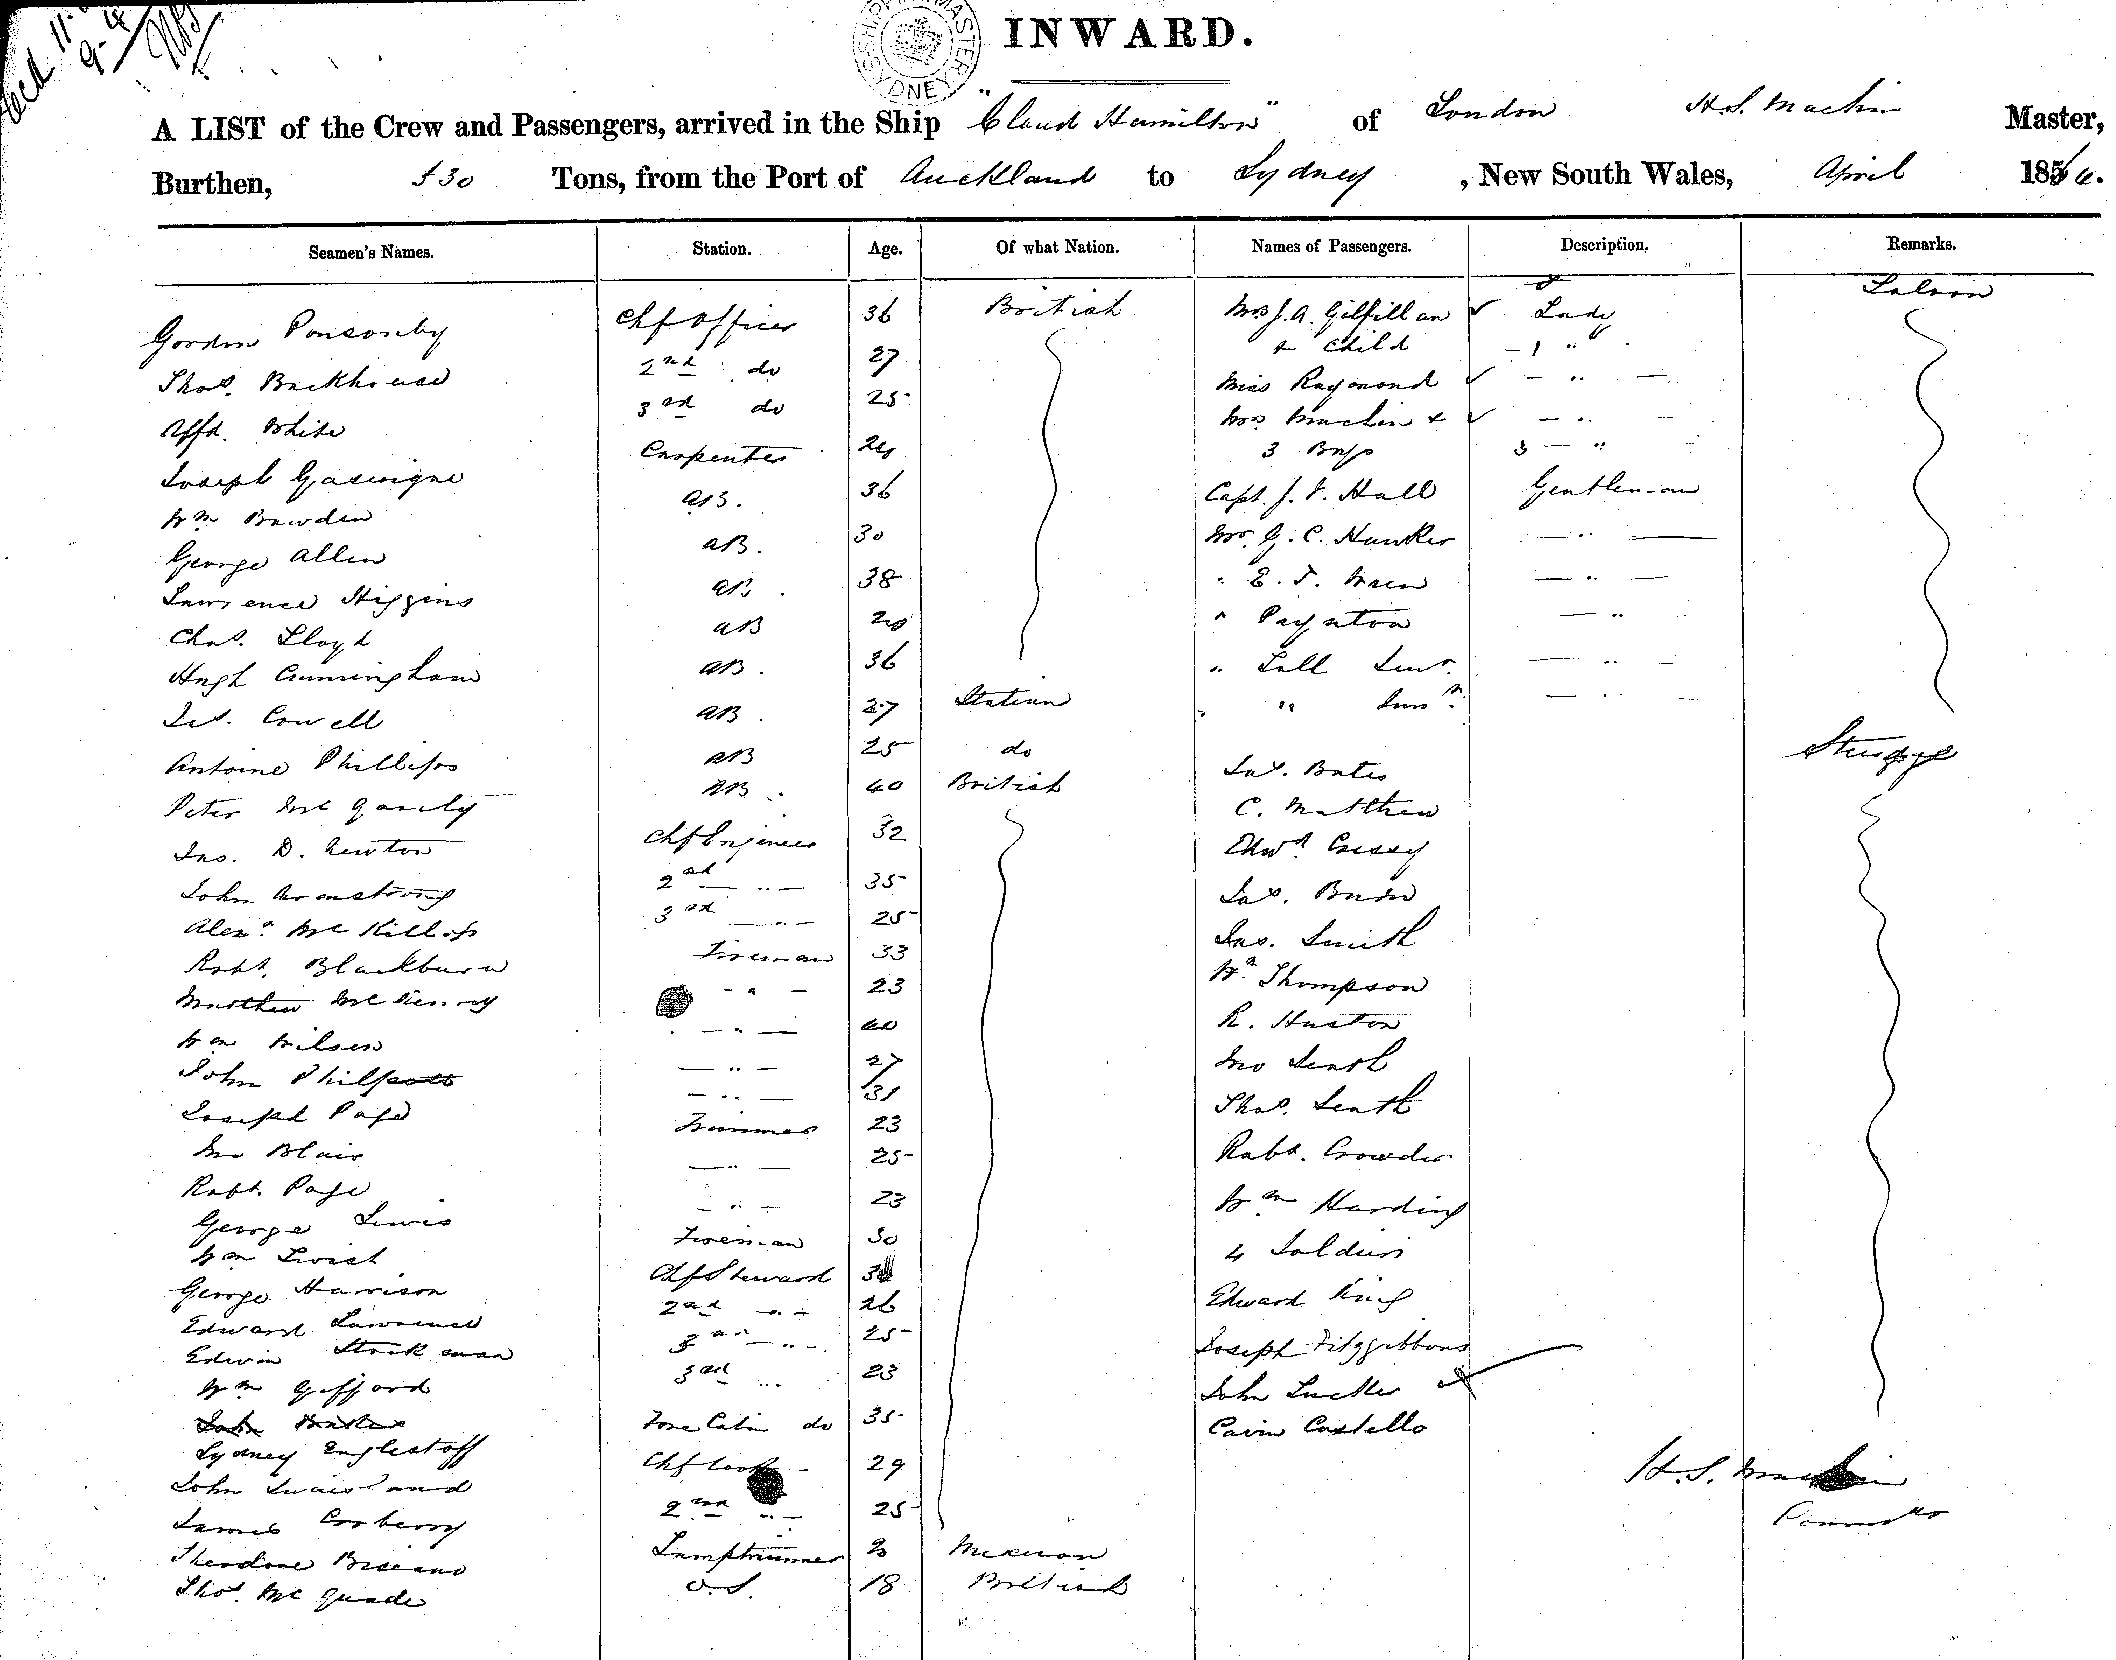 INWARD.
A LIST of the Crew and Passengers, arrived in the Ship "Claud Hamilton" of London H. S. Machin Master,
Burthen, 530 Tons, from the Port of Auckland to Sydney, New South Wales, April 1864.
Seamen's Names. Station. Age. Of what Nation. Names of Passengers. Description. Remarks.
Gordon Ponsonby Chf Officer 36 British Mrs J. A. Gilfillan ✓ Lady Saloon
Thos. Backhouse 2nd do 27 & Child - 1 "
White 3rd do 25 Miss Raymond ✓ - " -
Joseph Gascoigne Carpenter 24 Mrs Machin & ✓ - " -
3 Boys 3 - "
Wm Bawden AB. 36 Capt. J. F. Hall Gentleman
George Allen AB. 30 Mr. G. C. Hawker - " -
Lawrence Higgins AB. 38 " E. T. - " -
Chas. Lloyd AB 20 " Paynton - "
Hugh Cunningham AB. 36 " Lall Senr. - " -
Jas. Cowell AB. 27 Italian " " Junr. - " -
Antoine Phillips AB 25 do Jas. Bates Steerage
Peter Mc Garity AB. 40 British C. Matthew
Jno. D. Newton Chf Engineer 32 Edwd. Cressy
John Armstrong 2nd - " - 35 Jas.
Alexr. McKillop 3rd - " - 25 Jas. Smith
Robt. Blackburn Fireman 33 Wm Thompson
Matthew Mc - " - 23 R. Huston
Wm Wilson - " - 40 Jno
John Philpotts - " - 27 Thos.
Joseph Page - " - 31 Robt. Crowder
Jno Blair Trimmer 23 Wm Harding
Robt. Page - " - 25 4 Soldiers
George Lewis - " - 23 Edward King
Wm Twist Fireman 30 Joseph Fitzgibbons
George Harrison Chf Steward John Tucker
Edward Lawrence 2nd - " - 26 Cain Costello
Edwin Stockman - " - 25
Wm Gifford 3rd " 23
Sydney Englestoff Fore Cabin do 35
John Chf Cook - 29 H. S. Machin
James Corberry 2nd " - 25
Theodore Lamptrimmer Mexican
Thos. Mc Quade O.S. 18 British